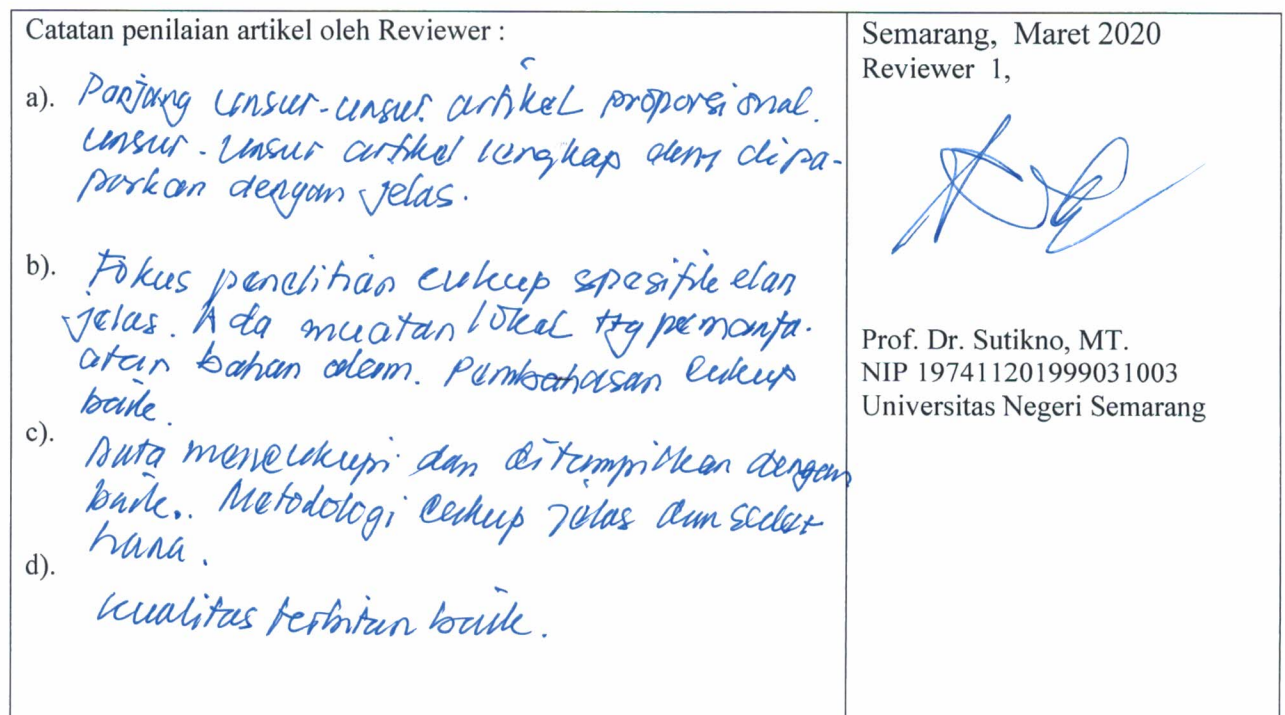 Catatan penilaian artikel oleh Reviewer :
a). Panjang unsur-unsur artikel proporsional.
unsur-unsur artikel lengkap dan dipa-
parkan dengan jelas.
b). Fokus penelitian cukup spesifik dan
jelas. Ada muatan lokal ttg pemanfa-
atan bahan alam. Pembahasan cukup
baik.
c).
Data mencukupi dan ditampilkan dengan
baik.. Metodologi cukup jelas dan seder
hana.
d).
kualitas terbitan baik.
Semarang, Maret 2020
Reviewer 1,
Prof. Dr. Sutikno, MT.
NIP 197411201999031003
Universitas Negeri Semarang